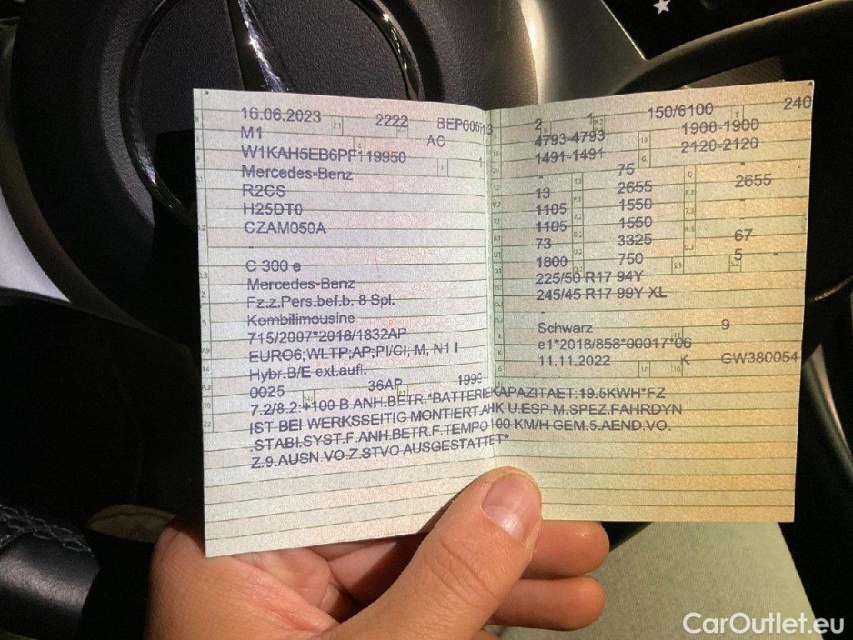 16.06.2023 2222 BEP00613
M1 AC
W1KAH5EB6PF119950
Mercedes-Benz
R2CS
H25DT0
CZAM050A
-
C 300 e
Mercedes-Benz
Fz.z.Pers.bef.b. 8 Spl.
Kombilimousine
715/2007*2018/1832AP
EURO6;WLTP;AP;PI/CI, M, N1 I
Hybr.B/E ext.aufl.
0025 36AP 1999
2 1 150/6100 240
4793-4793 1900-1900
1491-1491 2120-2120
- 75
13 2655 2655
1105 1550
1105 1550
73 3325 67
1800 750 5
225/50 R17 94Y
245/45 R17 99Y XL
-
Schwarz 9
e1*2018/858*00017*06
11.11.2022 K GW380054
7.2/8.2:+100 B.ANH.BETR.*BATTERIEKAPAZITAET:19.5KWH*FZ
IST BEI WERKSSEITIG MONTIERT.AHK U.ESP M.SPEZ.FAHRDYN
.STABI.SYST.F.ANH.BETR.F.TEMPO100 KM/H GEM.5.AEND.VO.
Z.9.AUSN.VO.Z.STVO AUSGESTATTET*
CarOutlet.eu